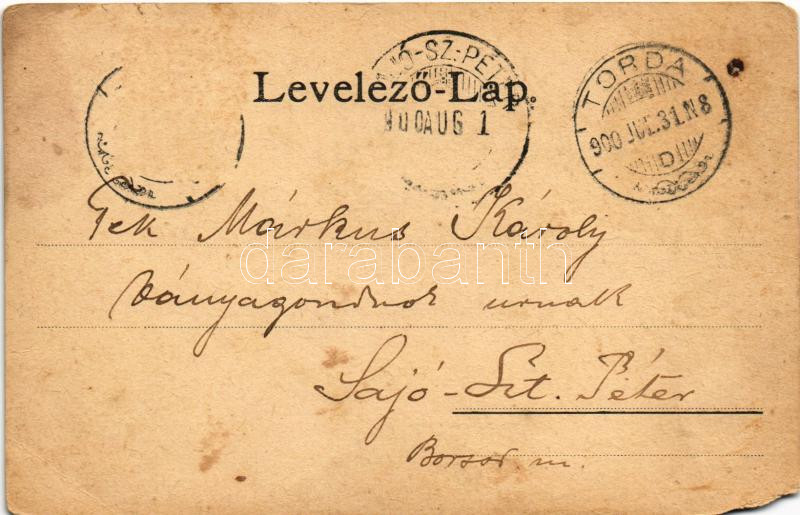 JÓ-SZ-PÉT
Levelező-Lap.
900 AUG 1
TORDA
900 JUL. 31. N8
D
Tek Márkus Károly
bányagondnok urnak
Sajó-Szt. Péter
Borsod m.
darabanth